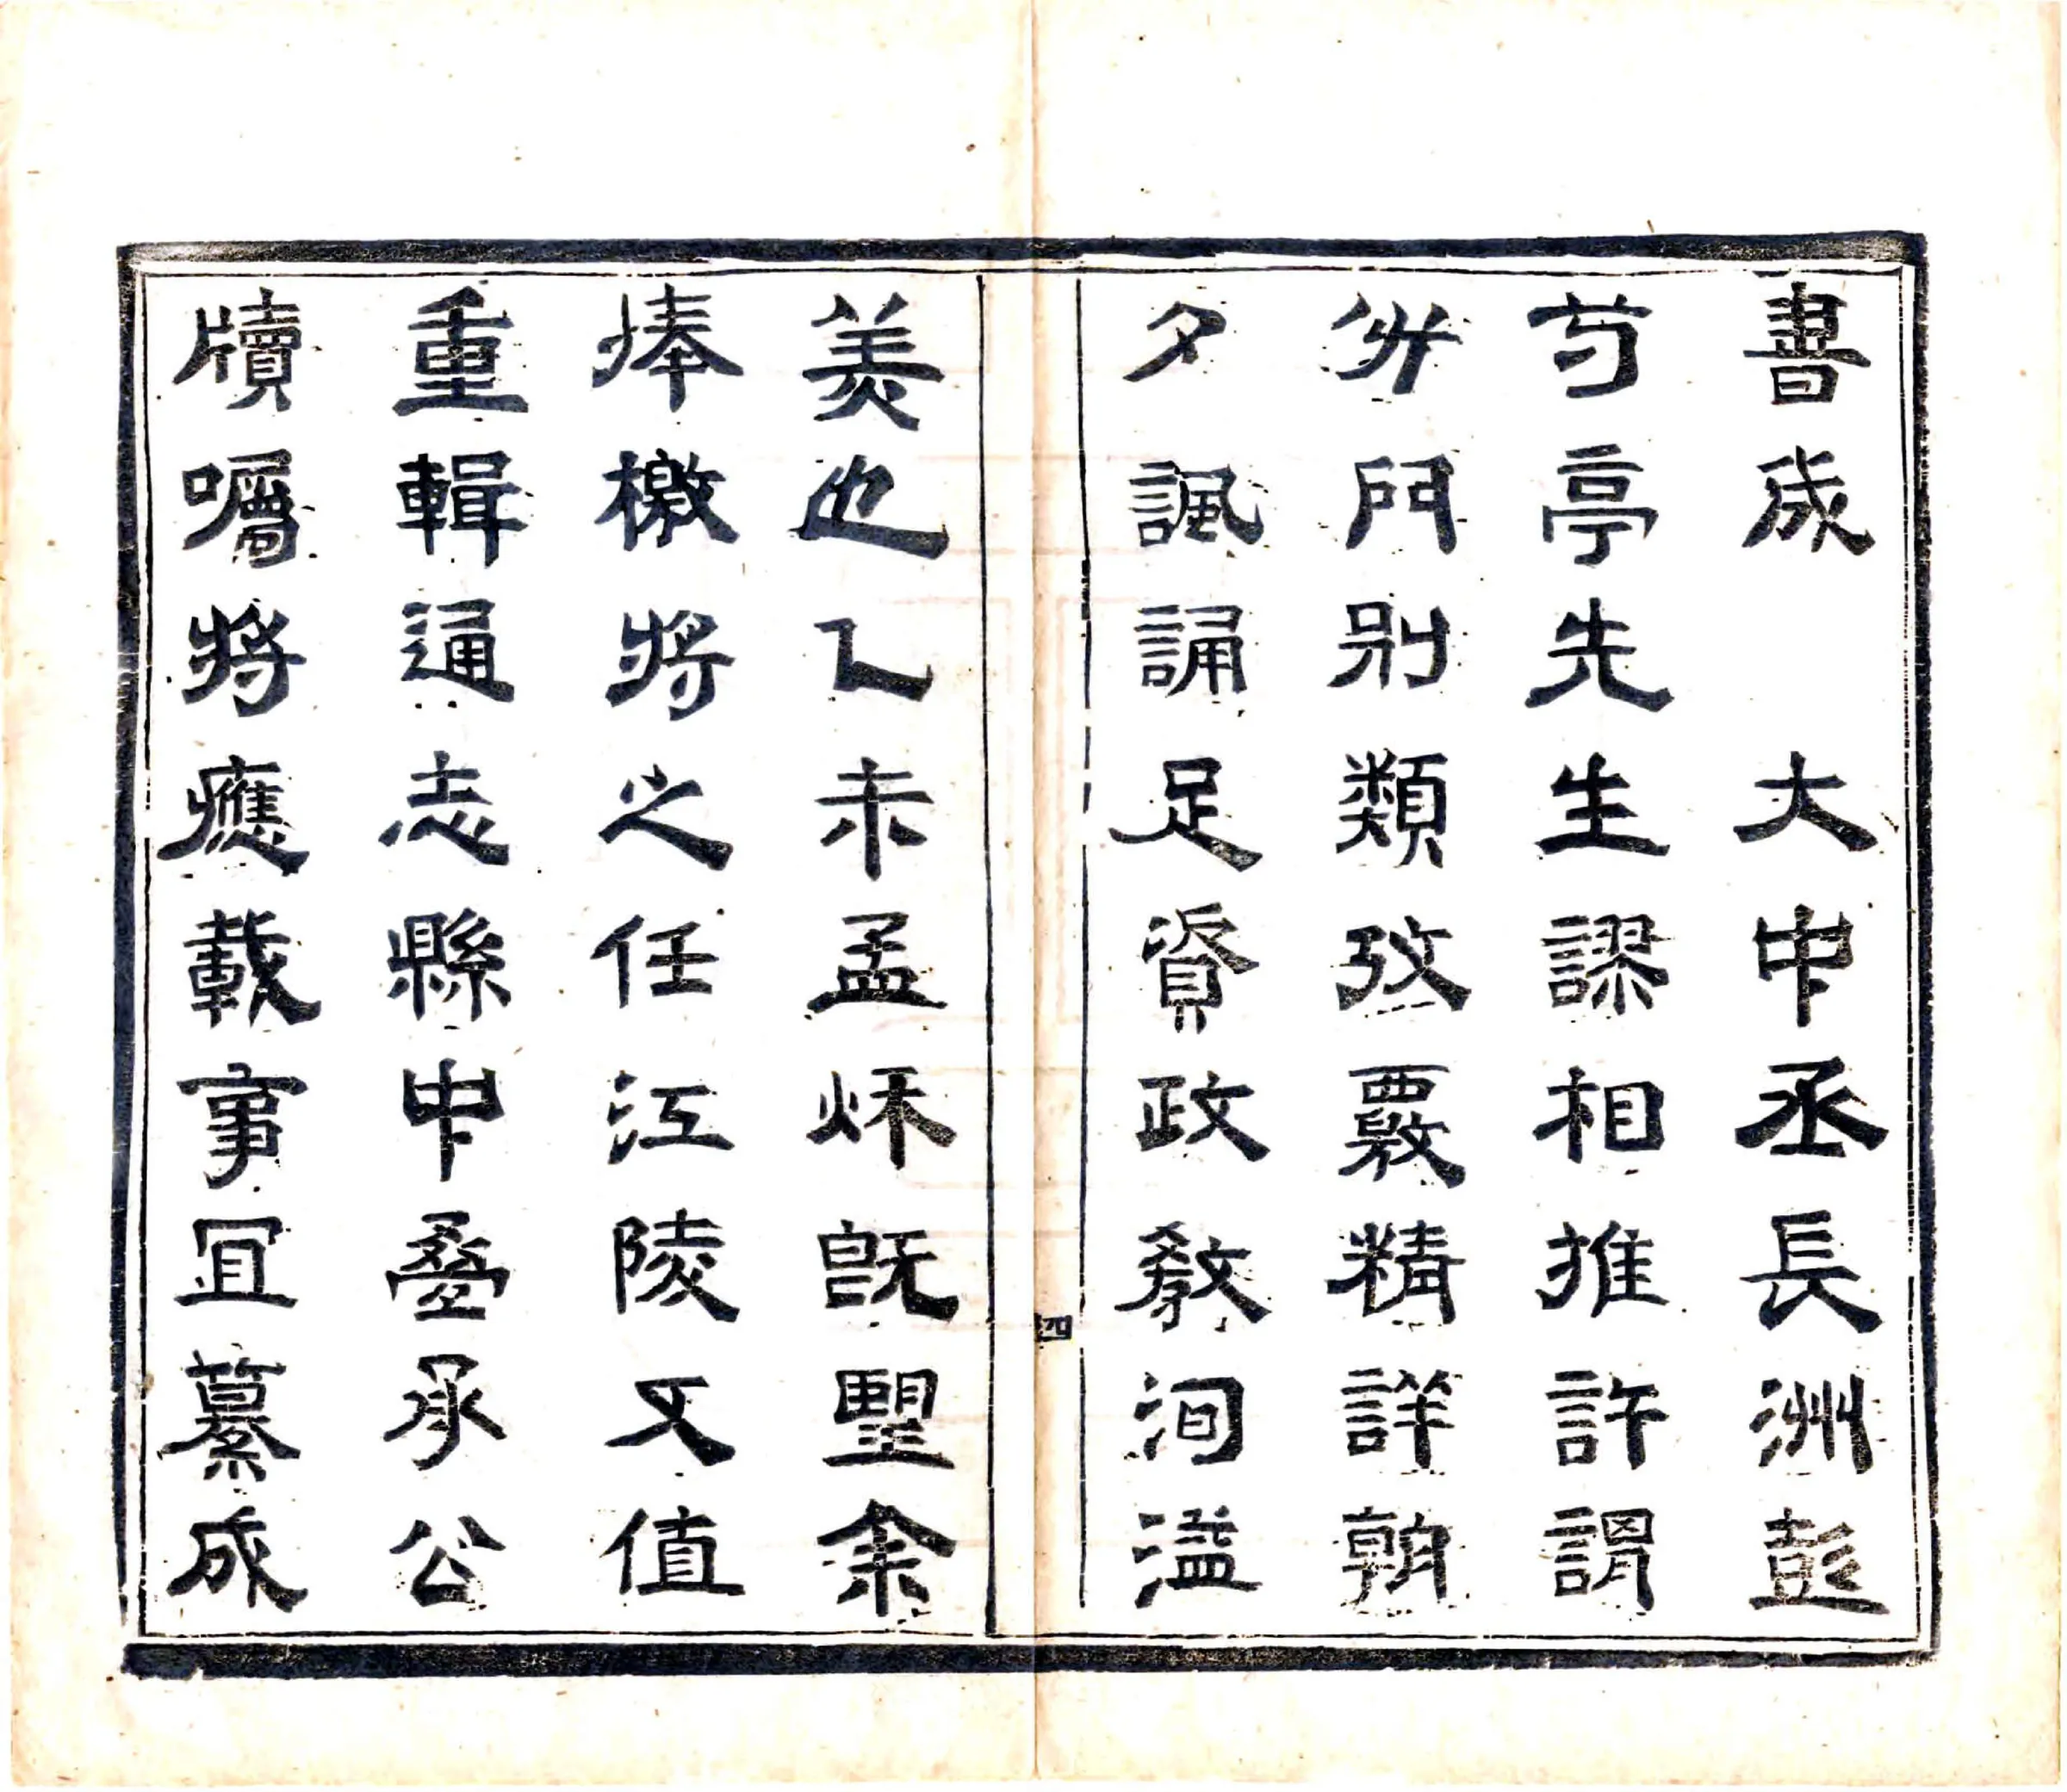 書成　大中丞長洲彭
芍亭先生謬相推許謂
分門別類攷覈精詳朝
夕諷誦足資政教洵溢
美也乙未孟秋既望余
捧檄將之任江陵又值
重輯通志縣中疊承公
牘囑將應載事宜纂成
四